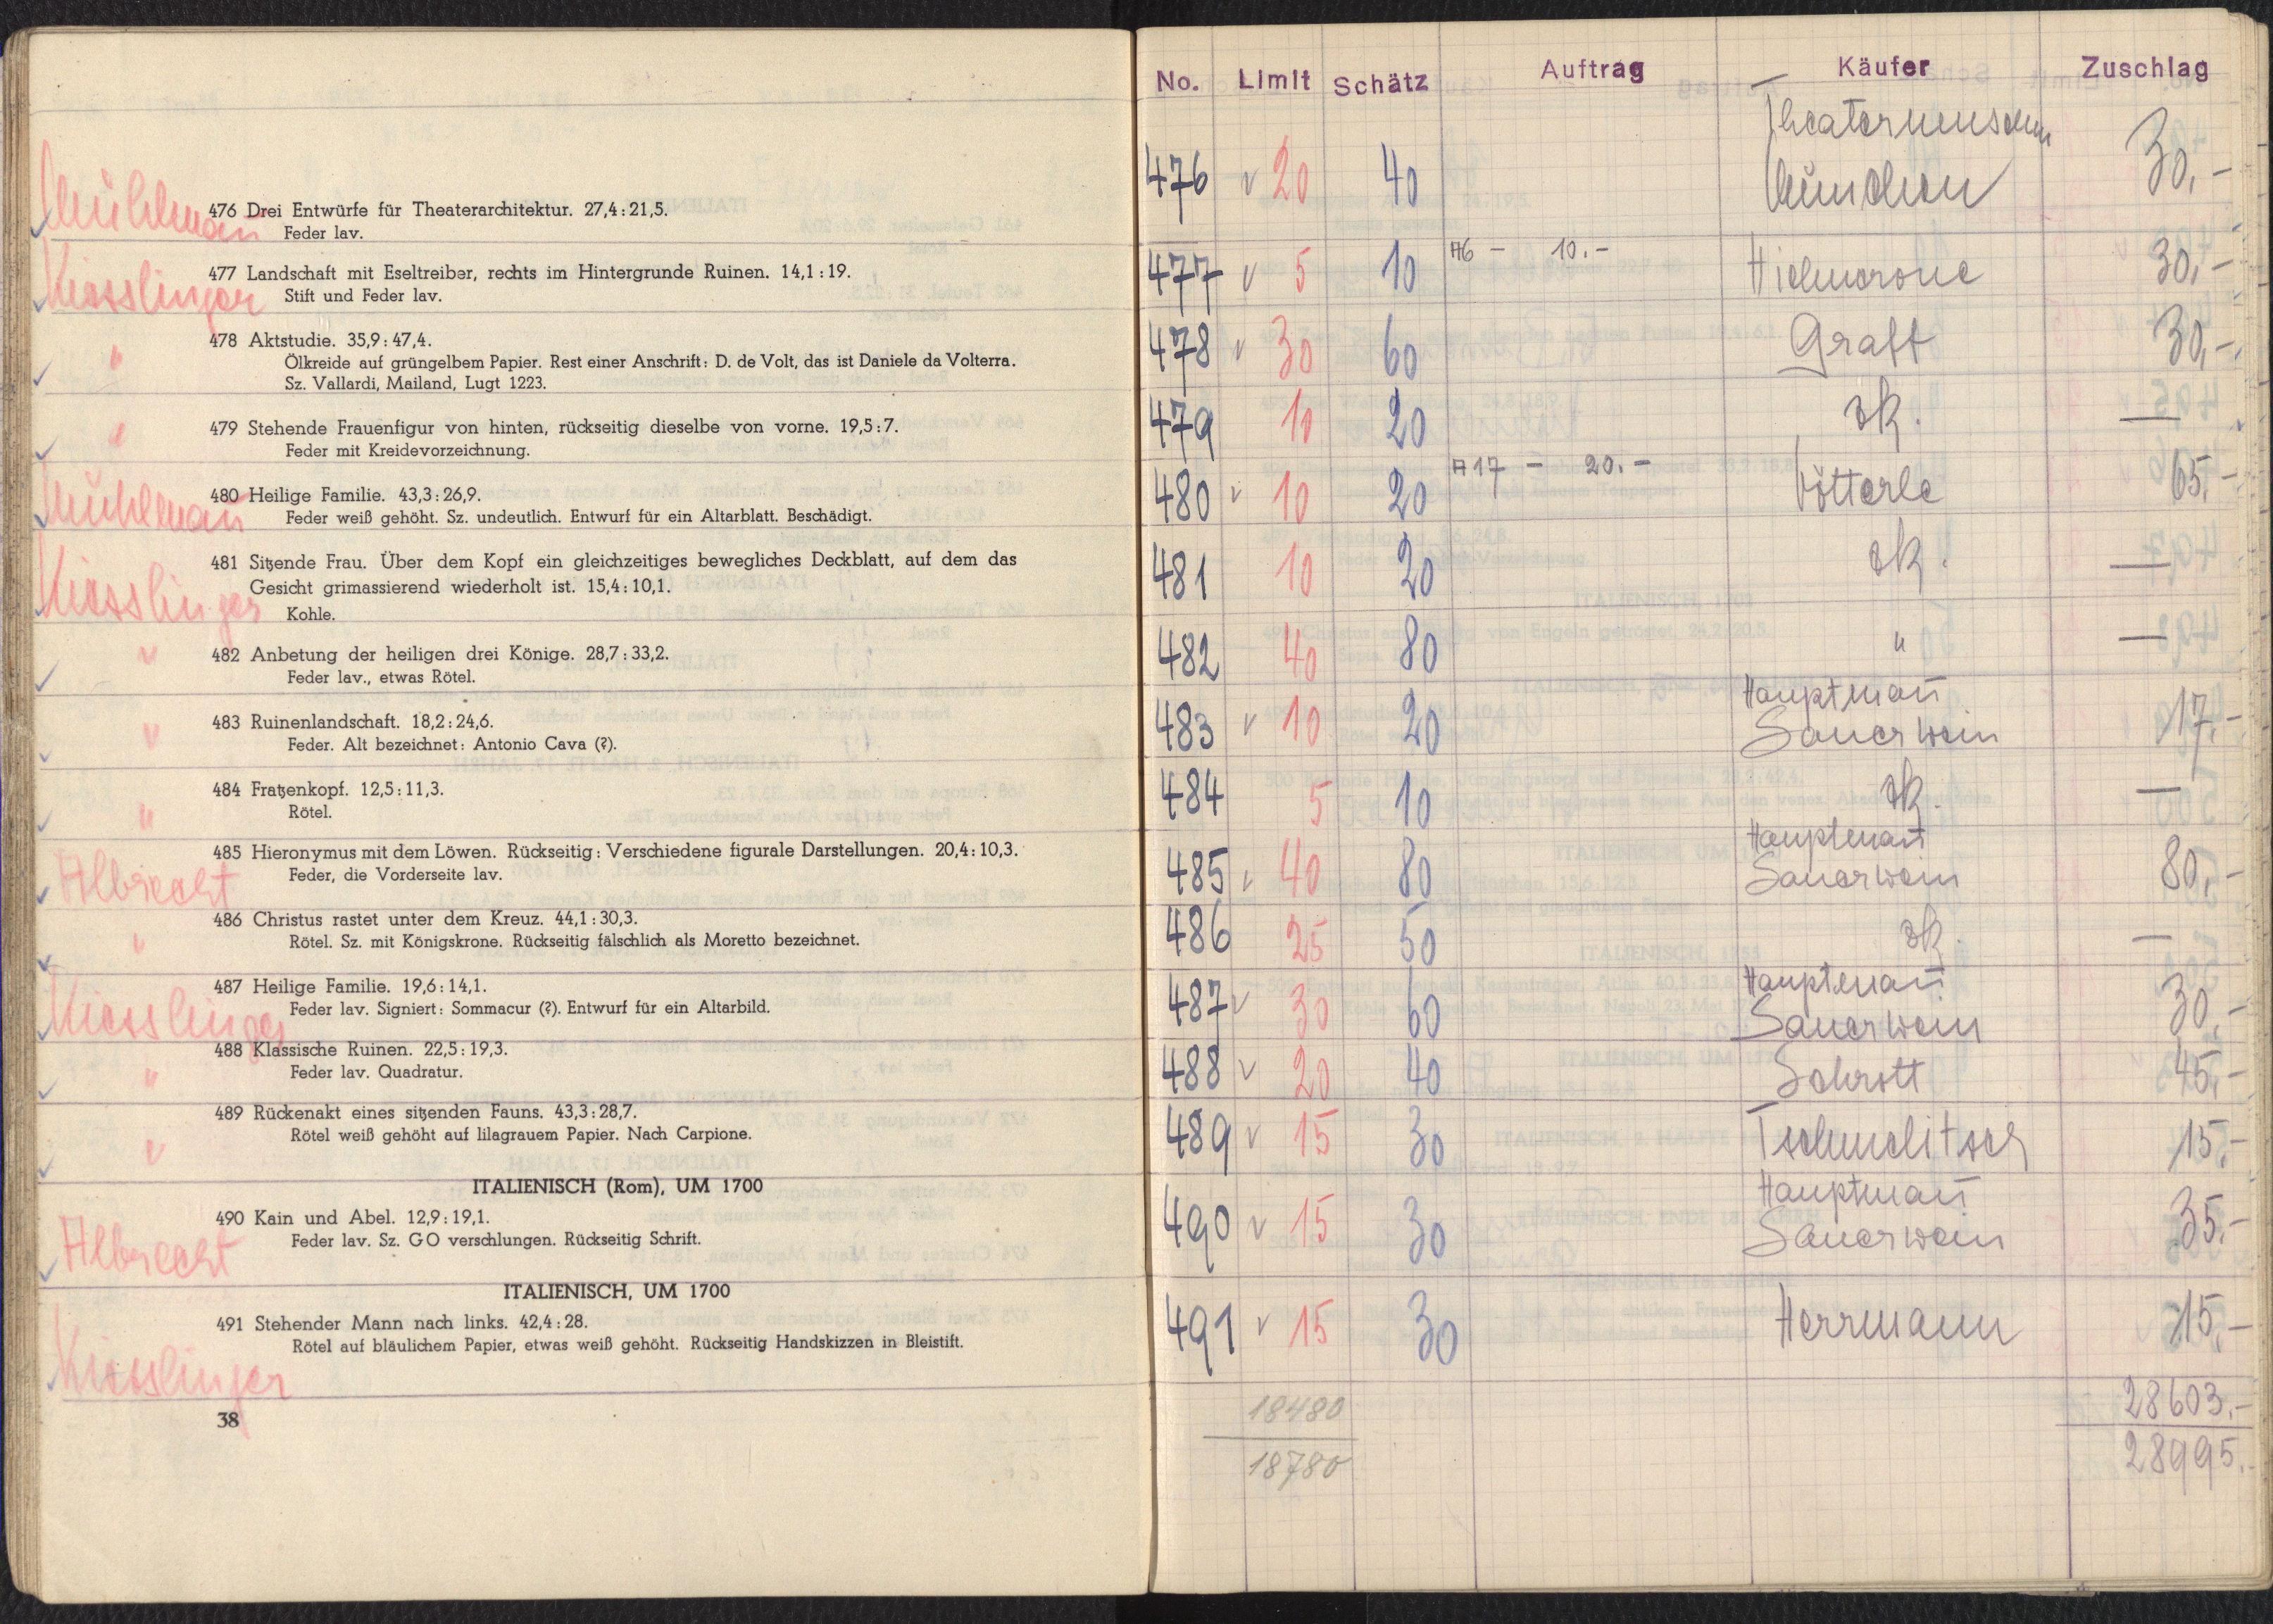 Mühlmann
476 Drei Entwürfe für Theaterarchitektur. 27,4 : 21,5.
Feder lav.
Kiesslinger
477 Landschaft mit Eseltreiber, rechts im Hintergrunde Ruinen. 14,1 : 19.
Stift und Feder lav.
"
478 Aktstudie. 35,9 : 47,4.
Ölkreide auf grüngelbem Papier. Rest einer Anschrift: D. de Volt, das ist Daniele da Volterra.
Sz. Vallardi, Mailand, Lugt 1223.
"
479 Stehende Frauenfigur von hinten, rückseitig dieselbe von vorne. 19,5 : 7.
Feder mit Kreidevorzeichnung.
Mühlmann
480 Heilige Familie. 43,3 : 26,9.
Feder weiß gehöht. Sz. undeutlich. Entwurf für ein Altarblatt. Beschädigt.
Kiesslinger
481 Sitzende Frau. Über dem Kopf ein gleichzeitiges bewegliches Deckblatt, auf dem das
Gesicht grimassierend wiederholt ist. 15,4 : 10,1.
Kohle.
"
482 Anbetung der heiligen drei Könige. 28,7 : 33,2.
Feder lav., etwas Rötel.
"
483 Ruinenlandschaft. 18,2 : 24,6.
Feder. Alt bezeichnet: Antonio Cava (?).
"
484 Fratzenkopf. 12,5 : 11,3.
Rötel.
Albrecht
485 Hieronymus mit dem Löwen. Rückseitig: Verschiedene figurale Darstellungen. 20,4 : 10,3.
Feder, die Vorderseite lav.
"
486 Christus rastet unter dem Kreuz. 44,1 : 30,3.
Rötel. Sz. mit Königskrone. Rückseitig fälschlich als Moretto bezeichnet.
Kiesslinger
487 Heilige Familie. 19,6 : 14,1.
Feder lav. Signiert: Sommacur (?). Entwurf für ein Altarbild.
"
488 Klassische Ruinen. 22,5 : 19,3.
Feder lav. Quadratur.
"
489 Rückenakt eines sitzenden Fauns. 43,3 : 28,7.
Rötel weiß gehöht auf lilagrauem Papier. Nach Carpione.
ITALIENISCH (Rom), UM 1700
Albrecht
490 Kain und Abel. 12,9 : 19,1.
Feder lav. Sz. GO verschlungen. Rückseitig Schrift.
ITALIENISCH, UM 1700
491 Stehender Mann nach links. 42,4 : 28.
Rötel auf bläulichem Papier, etwas weiß gehöht. Rückseitig Handskizzen in Bleistift.
Kiesslinger
38
No. Limit Schätz Auftrag Käufer Zuschlag
476 20 40 München 30,-
477 5 10 A6 - 10.- 30,-
478 30 60 Graff 30,-
479 10 20 zk. —
480 10 20 A17 - 20.- Vötterle 65.-
481 10 20 zk. —
482 40 80 " —
Hauptmann
483 10 20 Sauerwein 17,-
484 5 10 zk. —
Hauptmann
485 40 80 Sauerwein 80,-
486 25 50 zk. —
Hauptmann
487 30 60 Sauerwein 30,-
488 20 40 Schrott 45,-
489 15 30 15,-
Hauptmann
490 15 30 Sauerwein 35.-
491 15 30 Herrmann 15,-
18480 28603.-
18780 28995.-